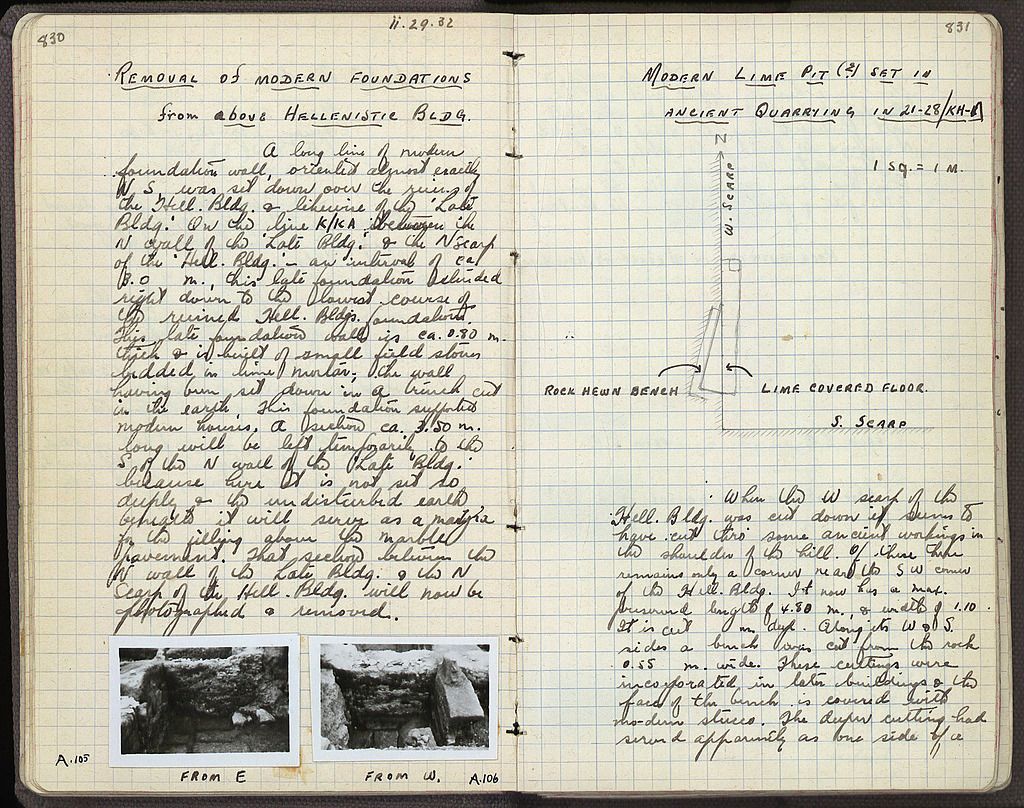 830
ii.29.32
REMOVAL of MODERN FOUNDATIONS
from above HELLENISTIC BLDG.
A long line of modern
foundation wall, oriented almost exactly
N S, was set down over the ruins of
the 'Hell. Bldg. & likewise of the 'Late
Bldg.' On the line K/KA between the
N wall of the 'Late Bldg.' & the N scarp
of the 'Hell. Bldg.' – an interval of ca
m., this late foundation
right down to the lowest course of
the ruined Hell. Bldgs. foundations.
This late foundation wall is ca. 0.80 m.
thick & is built of small field stones
bedded in lime mortar; the wall
having been set down in a trench cut
in the earth. This foundation supported
modern houses. A section ca. 3.50 m.
long will be left temporarily to the
S of the N wall of the 'Late Bldg.'
because here it is not set so
deeply & the undisturbed earth
beneath it will serve as a
for the filling above the marble
pavement. That section between the
N wall of the Late Bldg. & the N
Scarp of the Hell. Bldg. will now be
photographed & removed.
A.105
FROM E
FROM W.
A.106
831
MODERN LIME PIT (?) SET IN
ANCIENT QUARRYING IN 21-28/KH-
1 SQ. = 1 M.
N
W. SCARP
ROCK HEWN BENCH
LIME COVERED FLOOR.
S. SCARP
When the W scarp of the
Hell. Bldg. was cut down it seems to
have cut thro' some ancient workings in
the shoulder of the hill. Of these there
remains only a corner near the S W corner
of the Hell. Bldg. It now has a max.
preserved length of 4.80 m. & width of 1.10.
It is cut m. deep. Along its W & S.
sides a bench was cut from the rock
0.55 m. wide. These cuttings were
incorporated in later buildings & the
face of the bench is covered with
modern stucco. The deeper cutting had
served apparently as one side of a